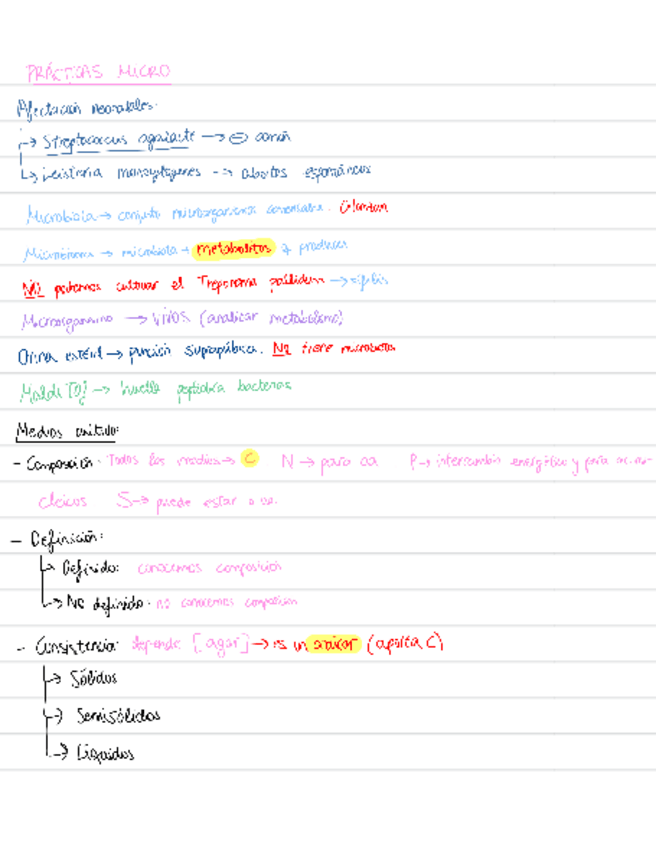 PRÁCTICAS MICRO
Afectación neonatales:
→ Streptococcus agalactiae → ⊖ común
→ Leisteria monocytogenes → abortos espontáneos
Microbiota → conjunto microorganismos comensales.
Microbioma → microbiota + metabolitos q producen
NO podemos cultivar el Treponema pallidum → sífilis
Microorganismo → VIVOS (analizar metabolismo)
Orina estéril → punción suprapúbica. No tiene microbiota
Maldi TOF → huella peptídica bacterias
Medios cultivo:
- Composición: Todos los medios → C N → para aa P → intercambio energético y para ac. nu-
cleicos S → puede estar o no.
- Definición:
→ Definido: conocemos composición
→ No definido: no conocemos composición
- Consistencia: depende [agar] → es un azúcar (aporta C)
→ Sólidos
→ Semisólidos
→ Líquidos